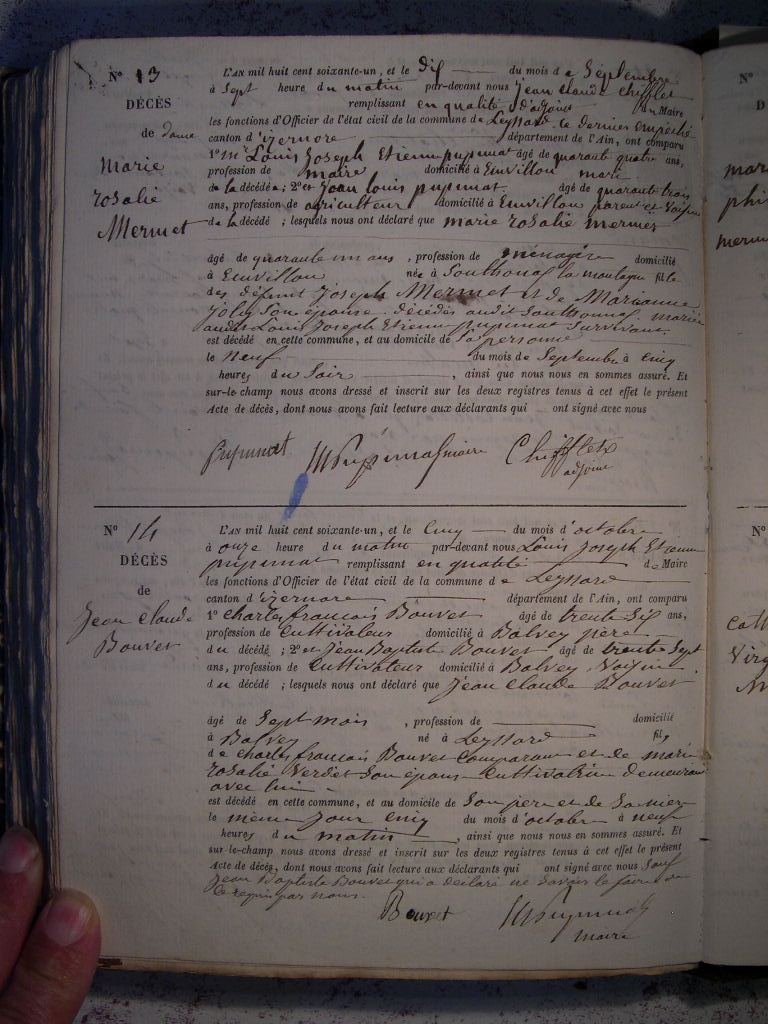 N° 13
DÉCÈS
de dame
Marie
rosalie
Mermet
L'AN mil huit cent soixante-un, et le dix du mois de Septembre
à Sept heure du matin par-devant nous jean claude chifflet
remplissant en qualité d'adjoint du Maire
les fonctions d'Officier de l'état civil de la commune de Leyssard ce dernier empeché
canton d'izernore département de l'Ain, ont comparu
1° mr Louis Joseph Etienne pupunat âgé de quarante quatre ans,
profession de maire domicilié à Euvillon mari
de la décédée ; 2° et Jean louis pupunat âgé de quarante trois
ans, profession de agriculteur domicilié à Euvillon parent et Voisin
de la décédé ; lesquels nous ont déclaré que marie rosalie mermet
âgé de quarante un ans , profession de ménagère domicilié
à Euvillon née à Southonax la montagne fille
des défunt Joseph Mermet et de Marianne
Joly Son épouse. décédés audit Southonax. mariée
audit Louis Joseph Etienne pupunat Survivant.
est décédé en cette commune, et au domicile de Sa personne
le neuf du mois de Septembre à cinq
heures du Soir , ainsi que nous nous en sommes assuré. Et
sur-le-champ nous avons dressé et inscrit sur les deux registres tenus à cet effet le présent
Acte de décès, dont nous avons fait lecture aux déclarants qui ont signé avec nous
Pupunat Pupunat maire Chifflet
adjoint
N° 14
DÉCÈS
de
Jean Claude
Bouvet
L'AN mil huit cent soixante-un, et le Cinq du mois d'octobre
à onze heure du matin par-devant nous Louis Joseph Etienne
pupunat remplissant en qualité de Maire
les fonctions d'Officier de l'état civil de la commune de Leyssard
canton d'izernore département de l'Ain, ont comparu
1° charles francois Bouvet âgé de trente Six ans,
profession de Cultivateur domicilié à Balvey père
du décédé ; 2° et Jean Baptiste Bouvet âgé de trente Sept
ans, profession de Cultivateur domicilié à Balvey, Voisin
du décédé ; lesquels nous ont déclaré que Jean Claude Bouvet
âgé de Sept mois , profession de domicilié
à Balvey né à Leyssard fils
de charles francois Bouvet Comparant et de marie
rosalie Verdet Son épouse Cultivatrice demeurant
avec lui
est décédé en cette commune, et au domicile de Son père et de Sa mère
le même Jour cinq du mois d'octobre à neuf
heures du matin , ainsi que nous nous en sommes assuré. Et
sur-le-champ nous avons dressé et inscrit sur les deux registres tenus à cet effet le présent
Acte de décès, dont nous avons fait lecture aux déclarants qui ont signé avec nous Sauf
Jean Baptiste Bouvet qui a déclaré ne Savoir le faire de
ce requis par nous.
Bouvet Pupunat
maire
N°
D
mari
phi
merm
N°
Cath
Virg